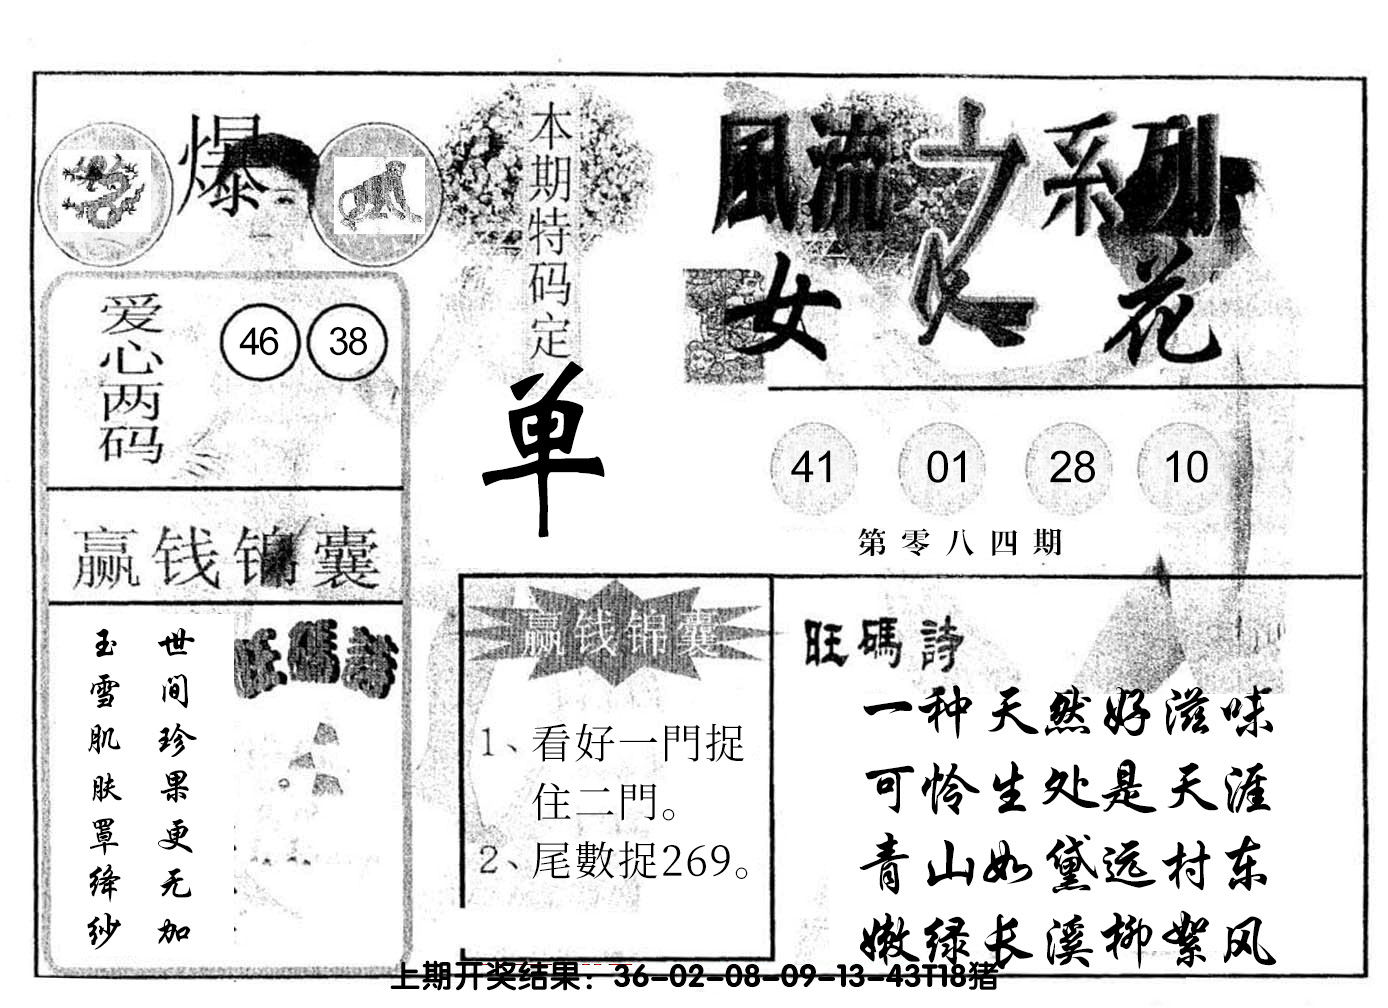 爆
本期特码定
单
風流之系列
女人花
爱心两码
46 38
41 01 28 10
第零八四期
赢钱锦囊
世间珍果更无加
玉雪肌肤罩绛纱
旺碼詩
赢钱锦囊
1、看好一門捉
住二門。
2、尾數捉269。
旺碼詩
一种天然好滋味
可怜生处是天涯
青山如黛远村东
嫩绿长溪柳絮风
上期开奖结果：36-02-08-09-13-43T18猪